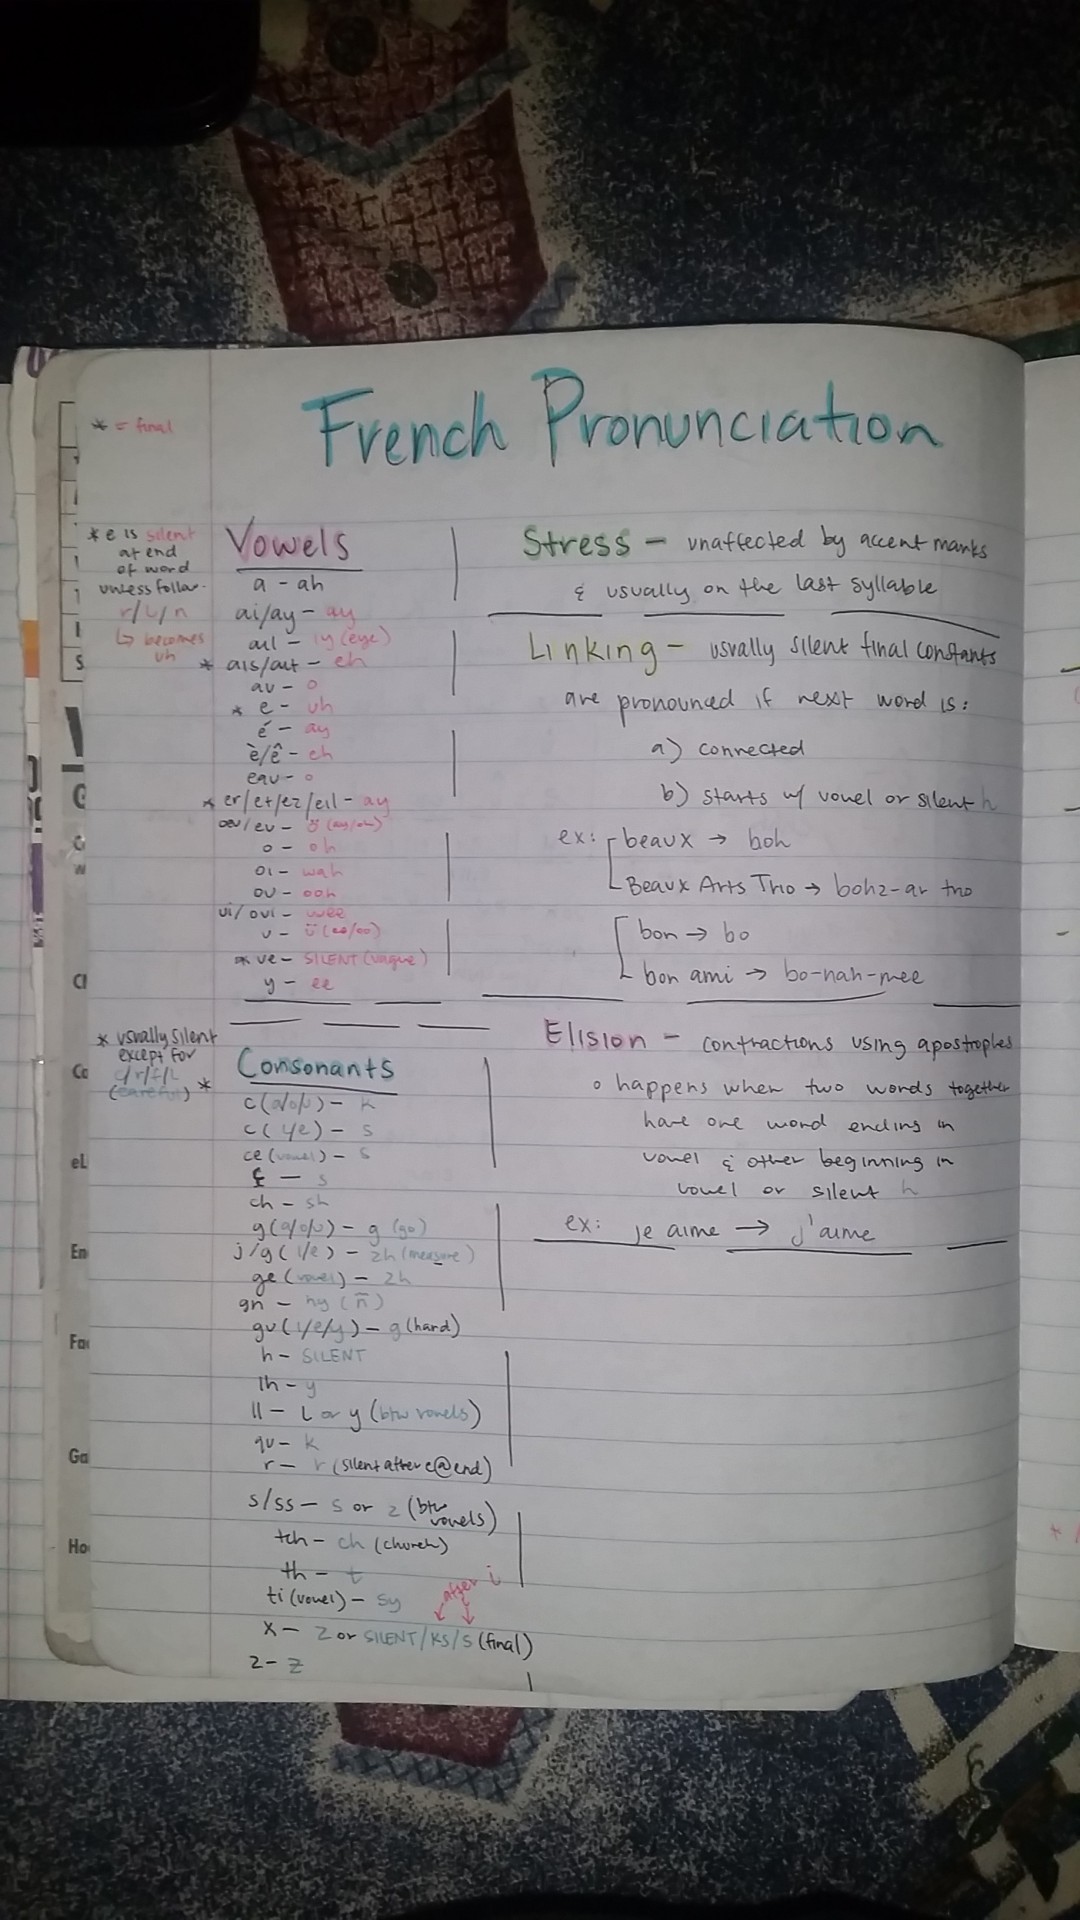 French Pronunciation
* = final
* e is silent
at end
of word
unless follow.
r/l/n
↳ becomes
uh
Vowels
a - ah
ai/ay - ay
ail - iy (eye)
* ais/ait - eh
au - o
* e - uh
é - ay
è/ê - eh
eau - o
* er/et/ez/eil - ay
oeu/eu -
o - oh
oi - wah
ou - ooh
ui/oui - wee
u - ü (ee/oo)
* ue - SILENT (vague)
y - ee
* usually silent
except for
c/r/f/l
(careful) *
Consonants
c (a/o/u) - k
c (i/e) - s
ce (vowel) - s
ç - s
ch - sh
g (a/o/u) - g (go)
j/g (i/e) - zh (measure)
ge (vowel) - zh
gn - ny (n̄)
gu (i/e/y) - g (hard)
h - SILENT
lh - y
ll - L or y (btw vowels)
qu - k
r - r (silent after e @ end)
s/ss - s or z (btw
vowels)
tch - ch (church)
th - t
ti (vowel) - sy
after i
x - z or SILENT/ks/s (final)
z - z
Stress - unaffected by accent marks
& usually on the last syllable
Linking - usually silent final constants
are pronounced if next word is:
a) connected
b) starts w/ vowel or silent h
ex: beaux → boh
Beaux Arts Trio → bohz-ar trio
bon → bo
bon ami → bo-nah-mee
Elision - contractions using apostrophes
o happens when two words together
have one word ending in
vowel & other beginning in
vowel or silent h
ex: je aime → j'aime